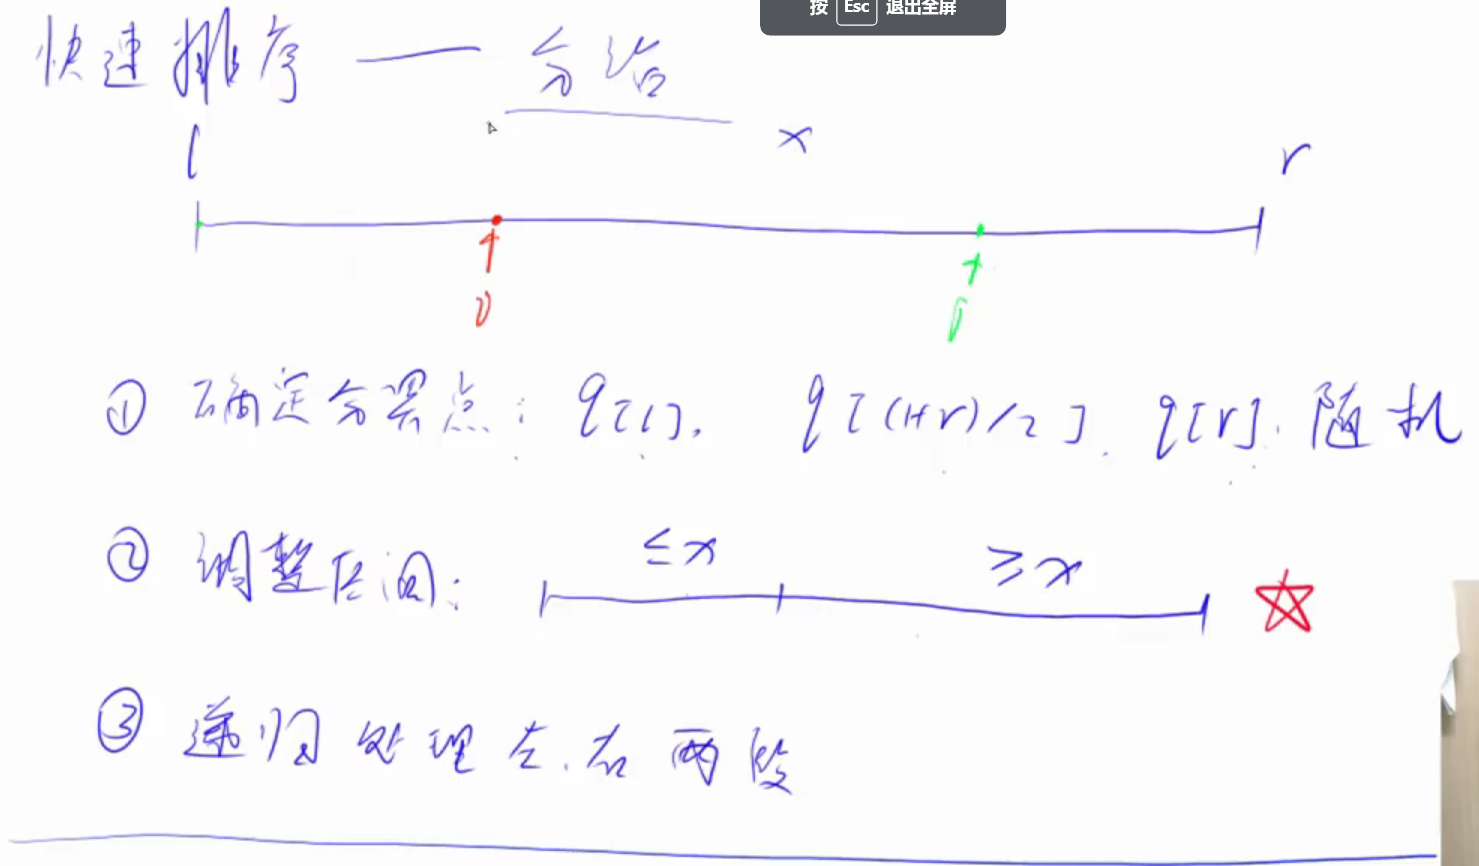 按 Esc 退出全屏
快速排序 —— 分治
l x r
① 确定分界点: q[l], q[(l+r)/2], q[r], 随机
② 调整区间: ≤x ≥x
③ 递归处理左、右两段